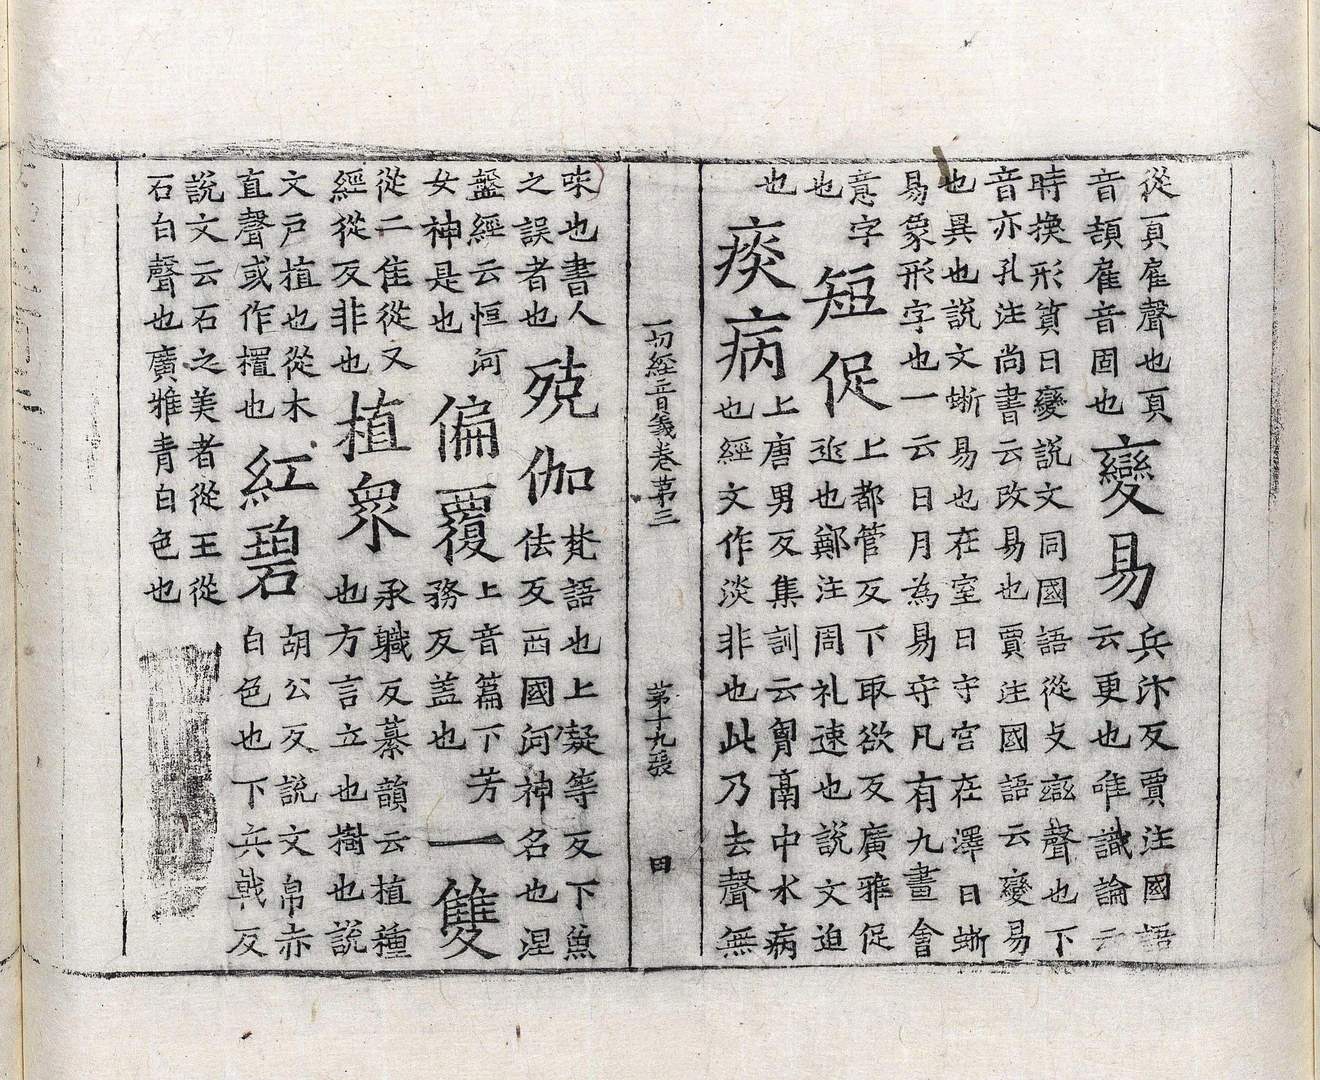 從頁雇聲也頁
音頡雇音固也
變易
兵汴反賈注國語
云更也唯識論云
時換形質曰變說文同國語從攴䜌聲也下
音亦孔注尚書云改易也賈注國語云變易
也異也說文蜥易也在室曰守宮在澤曰蜥
易象形字也一云日月為易守凡有九畫會
意字
也
短促
上都管反下取欲反廣雅促
近也鄭注周礼速也說文迫
也
痰病
上唐男反集訓云胷鬲中水病
也經文作淡非也此乃去聲無
一切經音義卷第三 第十九張 田
味也書人
之誤者也
殑伽
梵語也上凝等反下魚
佉反西國河神名也涅
盤經云恒河
女神是也
偏覆
上音篇下芳
務反蓋也
一雙
從二隹從又
經從反非也
植衆
承軄反纂韻云植種
也方言立也樹也說
文戶植也從木
直聲或作㯰也
紅碧
胡公反說文帛赤
白色也下兵戟反
說文云石之美者從王從
石白聲也廣雅青白色也